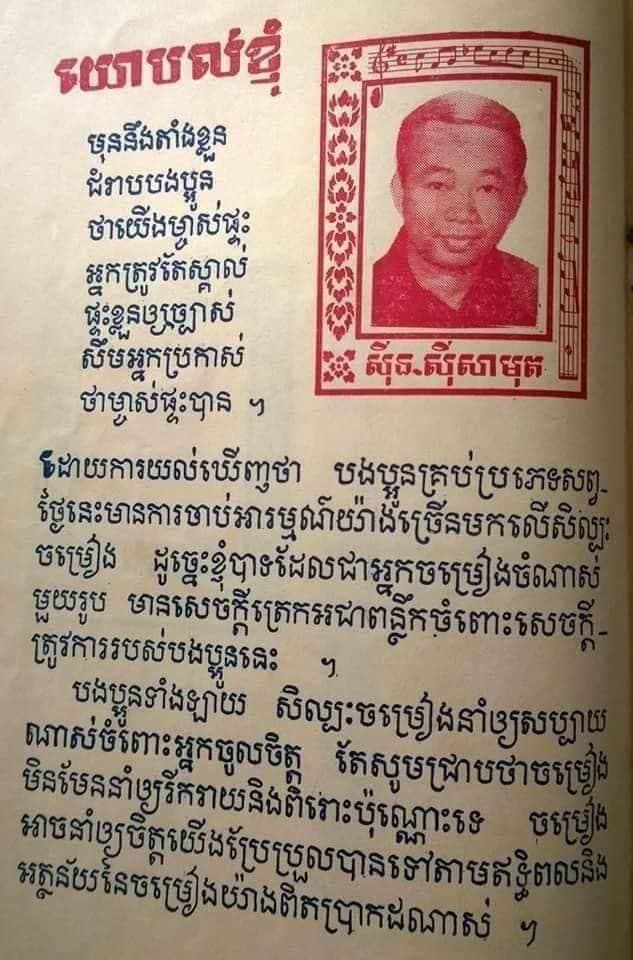 យោបល់ខ្ញុំ
មុននឹងតាំងខ្លួន
ជំរាបបងប្អូន
ថាយើងម្ចាស់ផ្ទះ
អ្នកត្រូវតែស្គាល់
ផ្ទះខ្លួនឲ្យច្បាស់
សឹមអ្នកប្រកាស់
ថាម្ចាស់ផ្ទះបាន ។
ស៊ីន ស៊ីសាមុត
ដោយការយល់ឃើញថា បងប្អូនគ្រប់ប្រភេទសព្វ-
ថ្ងៃនេះមានការចាប់អារម្មណ៍យ៉ាងច្រើនមកលើសិល្បៈ
ចម្រៀង ដូច្នេះខ្ញុំបាទដែលជាអ្នកចម្រៀងចំណាស់
មួយរូប មានសេចក្តីត្រេកអរជាពន្លឹកចំពោះសេចក្តី-
ត្រូវការរបស់បងប្អូននេះ ។
បងប្អូនទាំងឡាយ សិល្បៈចម្រៀងនាំឲ្យសប្បាយ
ណាស់ចំពោះអ្នកចូលចិត្ត តែសូមជ្រាបថាចម្រៀង
មិនមែននាំឲ្យរីករាយនិងពិរោះប៉ុណ្ណោះទេ ចម្រៀង
អាចនាំឲ្យចិត្តយើងប្រែប្រួលបានទៅតាមឥទ្ធិពលនិង
អត្ថន័យនៃចម្រៀងយ៉ាងពិតប្រាកដណាស់ ។